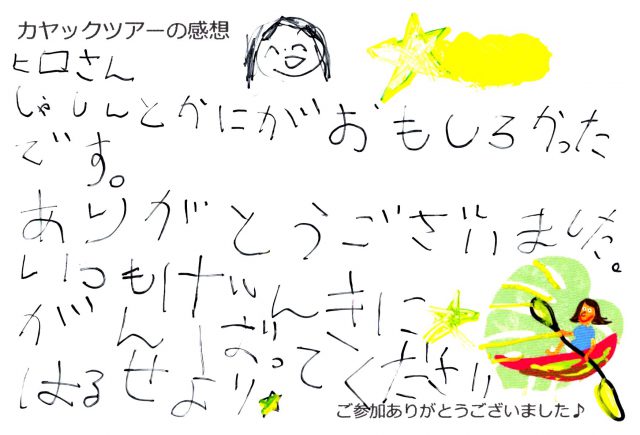 カヤックツアーの感想
ヒロさん
しゃしんとかにがおもしろかった
です。
ありがとうございました。
いつもげんきに
がんばってください
はるせより
ご参加ありがとうございました♪